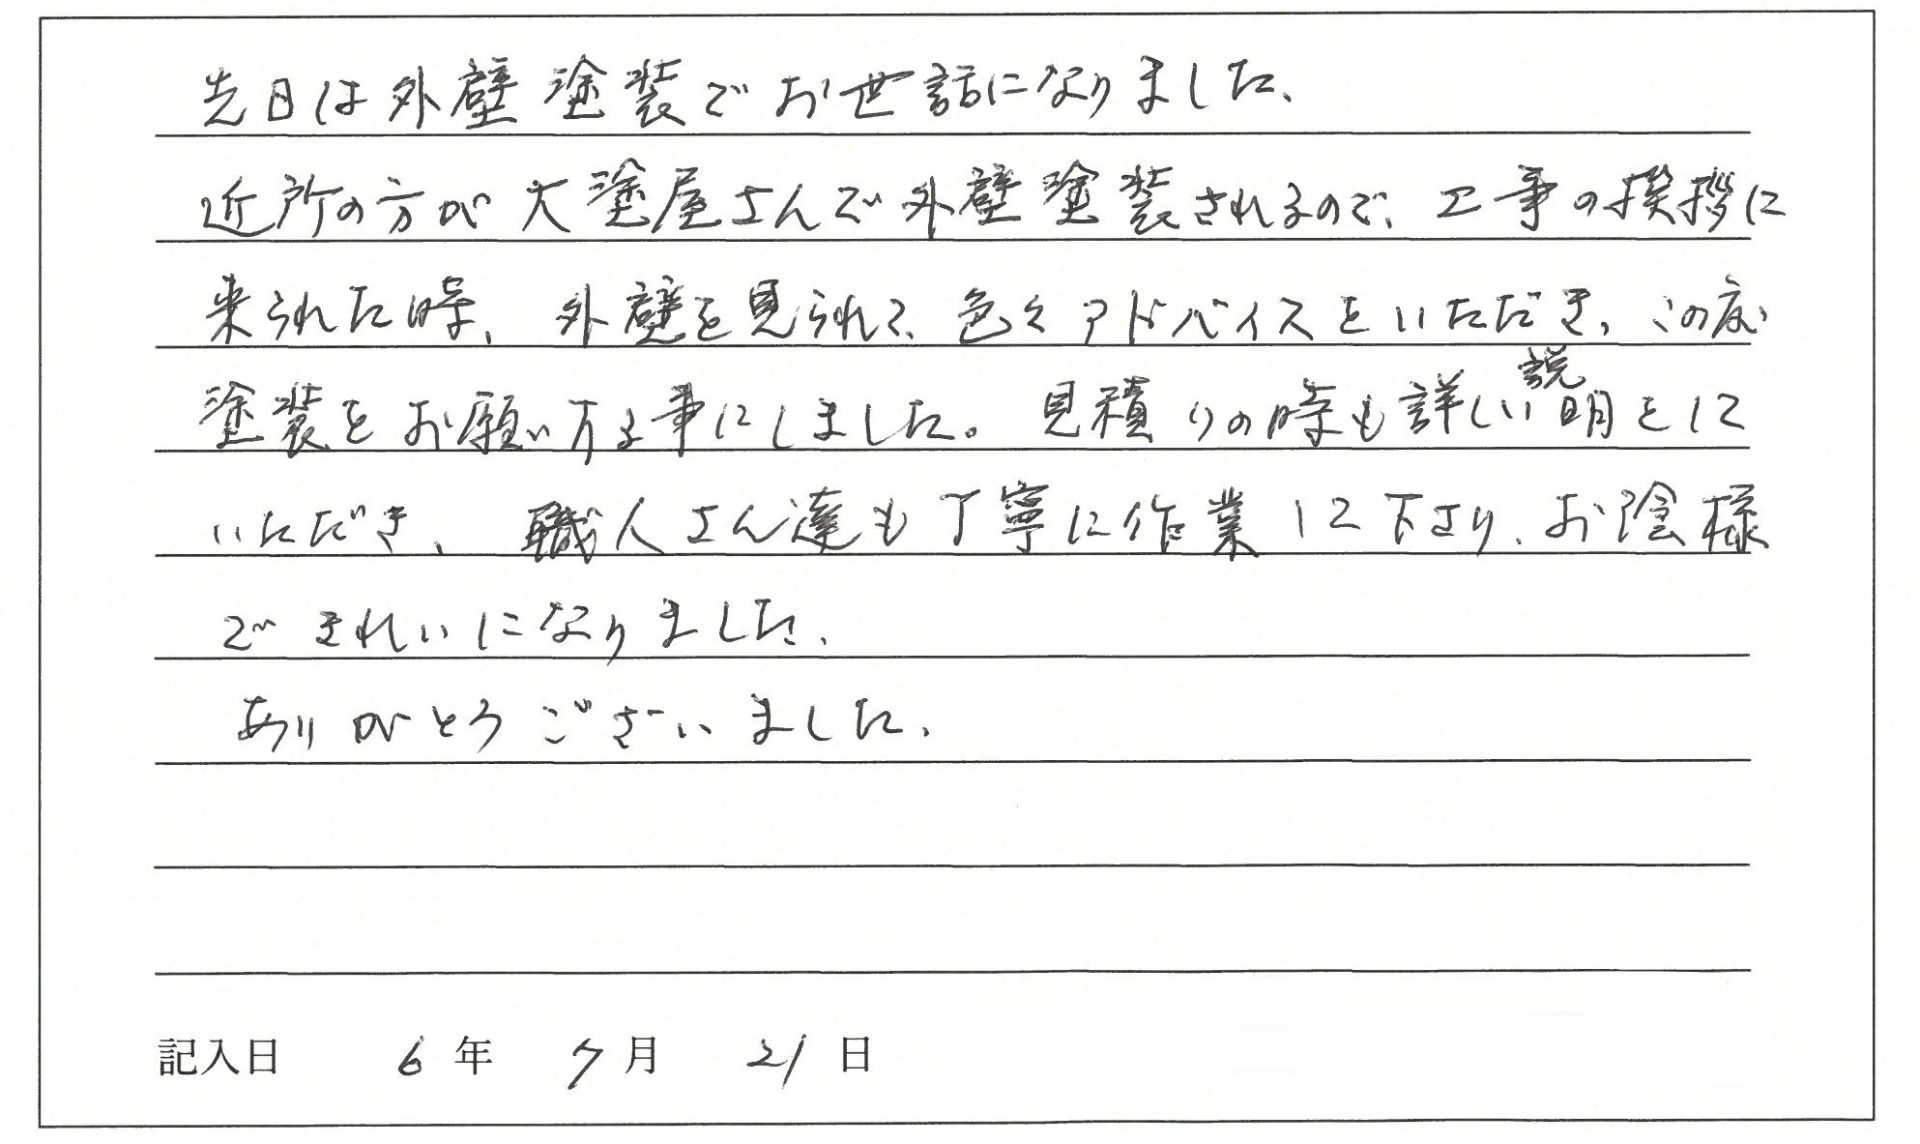 先日は外壁塗装でお世話になりました、
近所の方が大塗屋さんで外壁塗装されるので、工事の挨拶に
来られた時、外壁を見られて、色々アドバイスをいただき、この度
塗装をお願いする事にしました。見積りの時も詳しい説明をして
いただき、職人さん達も丁寧に作業して下さり、お陰様
できれいになりました、
ありがとうございました、
記入日 6年 7月 21日